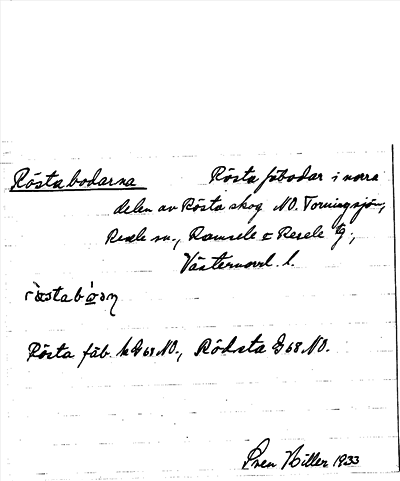 Röstabodarna Rösta fäbodar i norra
delen av Rösta skog NO. Torningsjön,
Resele sn., Ramsele o Resele tg.,
Västernorrl. l.
Rösta fäb. k G 68 NO., Rödsta G 68 NO.
Sven Hiller 1933